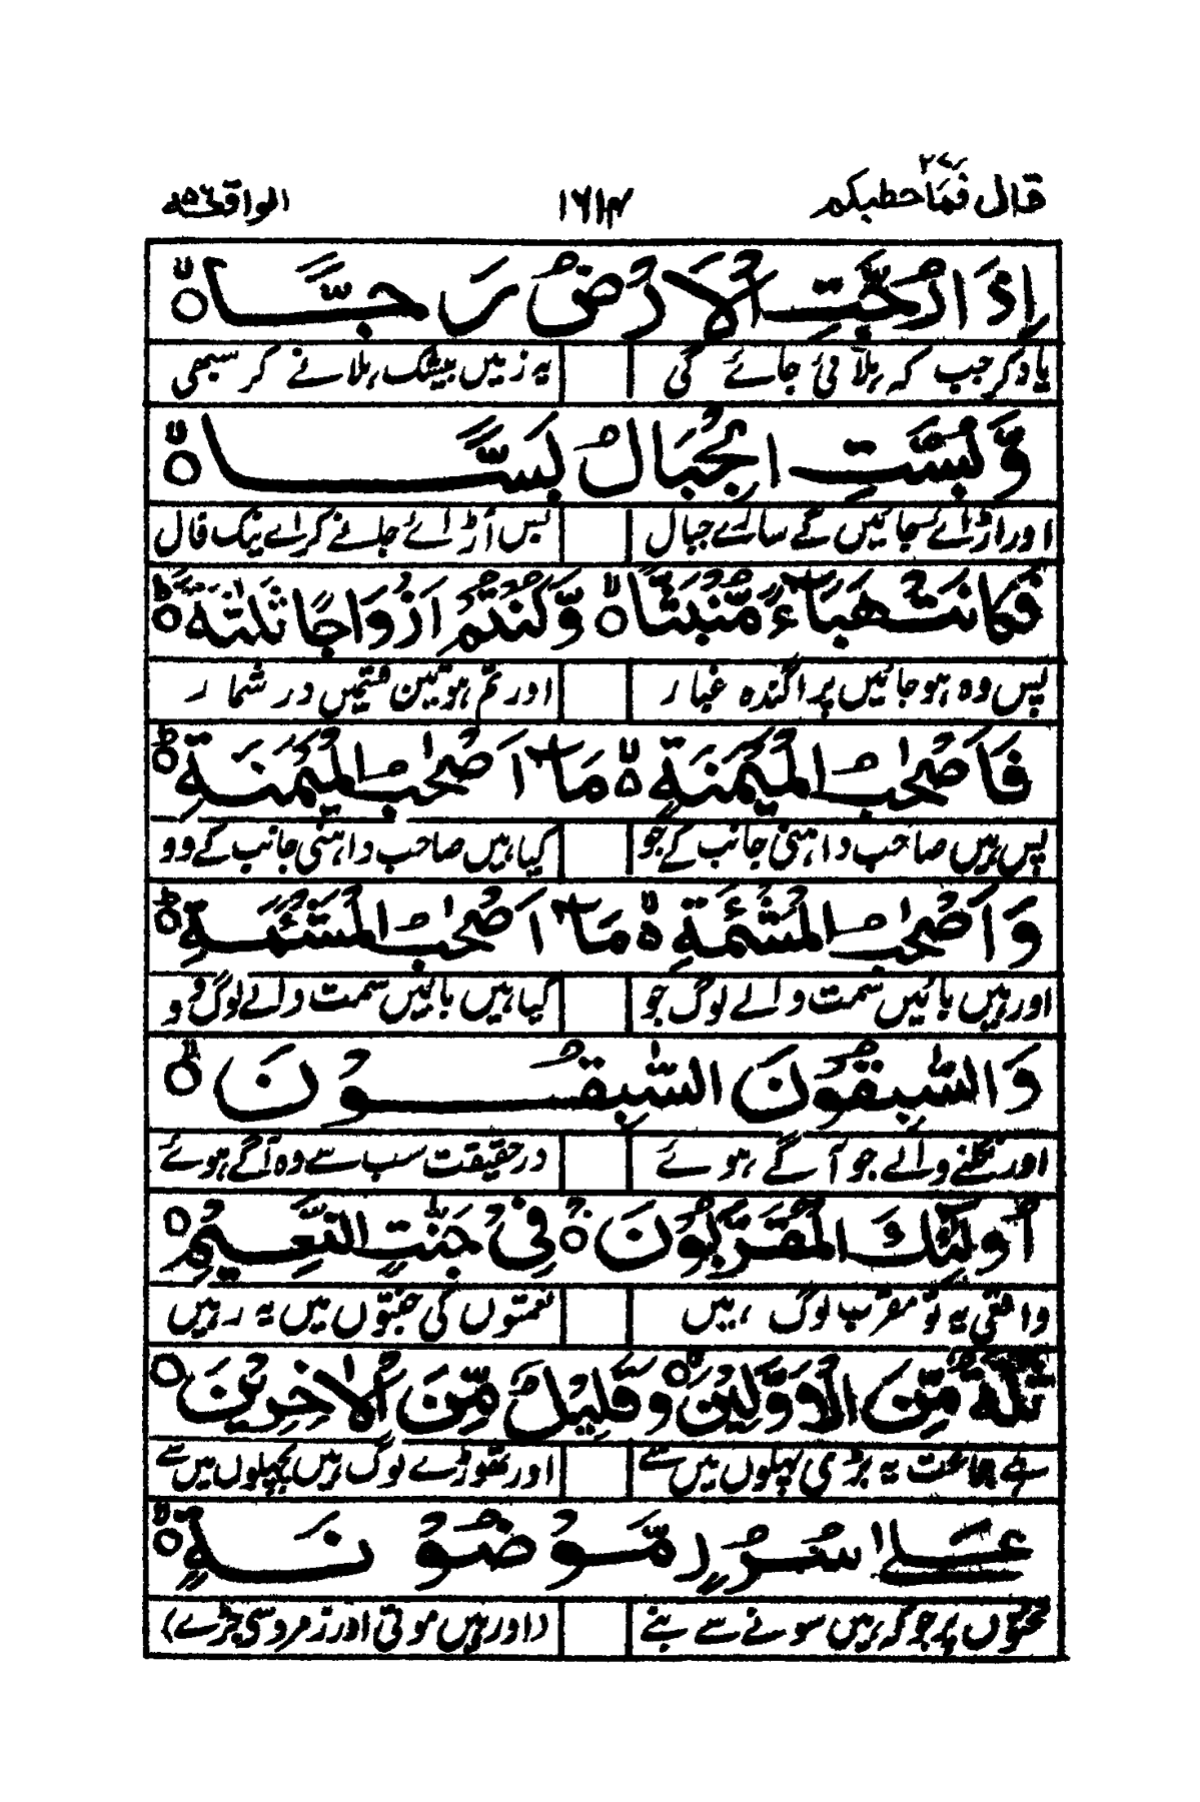 قال فما خطبکم ۲۷ ۱۶۱۴ الواقعۃ ۵۶
اِذَا رُجَّتِ الْاَرْضُ رَجًّا ۙ
یاد کر جب کہ ہلائی جائے گی یہ زمیں بیشک ہلانے کر سبھی
وَّ بُسَّتِ الْجِبَالُ بَسًّا ۙ
اور اڑائے جائیں گے سارے جبال بس اڑائے جانے کر اے نیک قال
فَكَانَتْ هَبَآءً مُّنْۢبَثًّا ۙ وَّ كُنْتُمْ اَزْوَاجًا ثَلٰثَةً ؕ
پس وہ ہو جائیں پراگندہ غبار اور تم ہو تین قسمیں در شمار
فَاَصْحٰبُ الْمَيْمَنَةِ ۙ مَاۤ اَصْحٰبُ الْمَيْمَنَةِ ؕ
پس ہیں صاحب داہنی جانب کے جو کیا ہیں صاحب داہنی جانب کے وو
وَ اَصْحٰبُ الْمَشْـَٔمَةِ ۙ مَاۤ اَصْحٰبُ الْمَشْـَٔمَةِ ؕ
اور ہیں بائیں سمت والے لوگ جو کیا ہیں بائیں سمت والے لوگ وو
وَ السّٰبِقُوْنَ السّٰبِقُوْنَ ۙ
اور نکلنے والے جو آگے ہوئے در حقیقت سب سے وہ آگے ہوئے
اُولٰٓئِكَ الْمُقَرَّبُوْنَ ۚ فِيْ جَنّٰتِ النَّعِيْمِ
واقعی یہ تو مقرب لوگ ہیں نعمتوں کی جنتوں میں یہ رہیں
ثُلَّةٌ مِّنَ الْاَوَّلِيْنَ ۙ وَ قَلِيْلٌ مِّنَ الْاٰخِرِيْنَ
ہے جماعت یہ بڑی پہلوں میں سے اور تھوڑے لوگ ہیں پچھلوں میں سے
عَلٰى سُرُرٍ مَّوْضُوْنَةٍ ۙ
تختوں پر جو کہ ہیں سونے سے بنے (اور ہیں موتی اور زمرد سی جڑے)